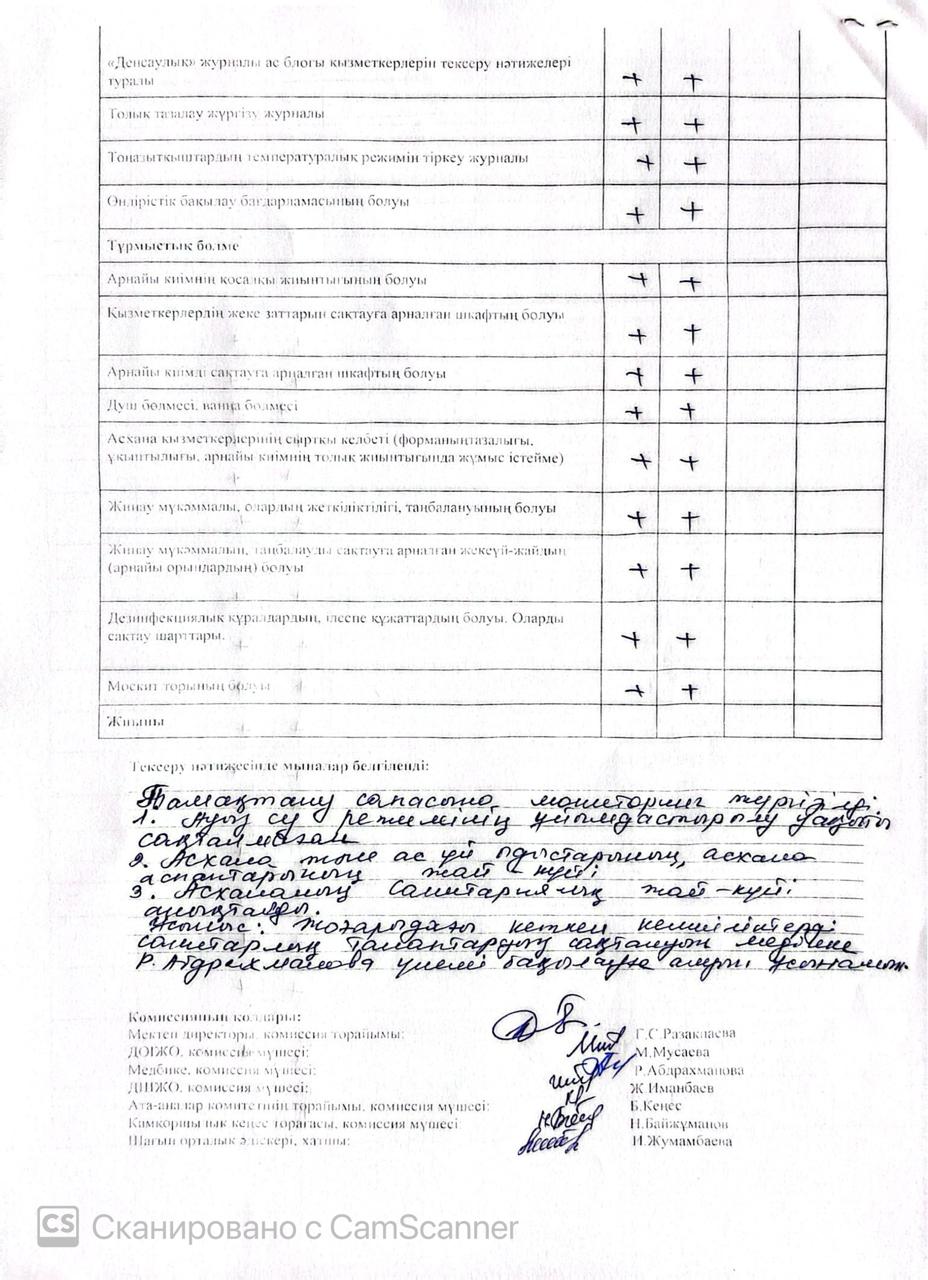 «Денсаулық» журналы ас блогы қызметкерлерін тексеру нәтижелері
туралы + +
Толық тазалау жүргізу журналы + +
Тоңазытқыштардың температуралық режимін тіркеу журналы + +
Өндірістік бақылау бағдарламасының болуы + +
Тұрмыстық бөлме
Арнайы киімнің қосалқы жиынтығының болуы + +
Қызметкерлердің жеке заттарын сақтауға арналған шкафтың болуы + +
Арнайы киімді сақтауға арналған шкафтың болуы + +
Душ бөлмесі, ванна бөлмесі + +
Асхана қызметкерлерінің сыртқы келбеті (форманыңтазалығы,
ұқыптылығы, арнайы киімнің толық жиынтығында жұмыс істейме) + +
Жинау мүкәммалы, олардың жеткіліктілігі, таңбалануының болуы + +
Жинау мүкәммалын, таңбалауды сақтауға арналған жекеүй-жайдың
(арнайы орындардың) болуы + +
Дезинфекциялық құралдардың, ілеспе құжаттардың болуы. Оларды
сақтау шарттары. + +
Москит торының болуы + +
Жиыны
Тексеру нәтижесінде мыналар белгіленді:
Тамақтану сапасына мониторинг жүргізілді
1. Ауыз су режимінің ұйымдастырылу уақыты
сақталмаған
2. Асхана және ас үй ыдыстарының, асхана
аспаптарының жай-күйі
3. Асхананың санитариялық жай-күйі
анықталды.
Ұсыныс: Жоғарыдағы кеткен кемшіліктерді
санитарлық талаптардың сақталуын медбике
Р. Абдрахманова үнемі бақылауға алуын ұсынамын.
Комиссияның қолдары:
Мектеп директоры, комиссия төрайымы: Г.С.Разақпаева
ДОІЖО, комиссия мүшесі: М.Мусаева
Медбике, комиссия мүшесі: Р.Абдрахманова
ДШЖО, комиссия мүшесі: Ж.Иманбаев
Ата-аналар комитетінің төрайымы, комиссия мүшесі: Б.Кеңес
Қамқоршылық кеңес төрағасы, комиссия мүшесі: Н.Байжұманов
Шағын орталық әдіскері, хатшы: И.Жумамбаева
CS Сканировано с CamScanner